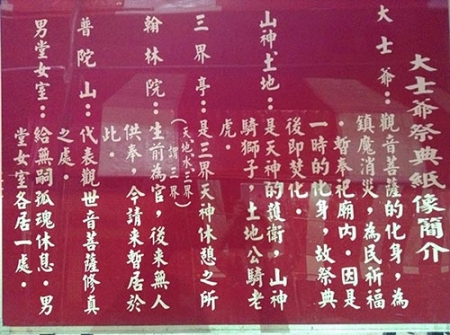 大士爺祭典紙像簡介
大士爺：觀音菩薩的化身，為
鎮魔消火，為民祈福
．暫奉祀廟內．因是
一時的化身，故祭典
後即焚化．
山神土地：是天神的護衛，山神
騎獅子，土地公騎老
虎．
三界亭：是三界天神休憩之所
（天地水三界
謂三界）
翰林院：生前為官，後來無人
供奉，今請來暫居於
此．
普陀山：代表觀世音菩薩修真
之處．
男堂女室：給無嗣孤魂休息．男
堂女室各居一處．